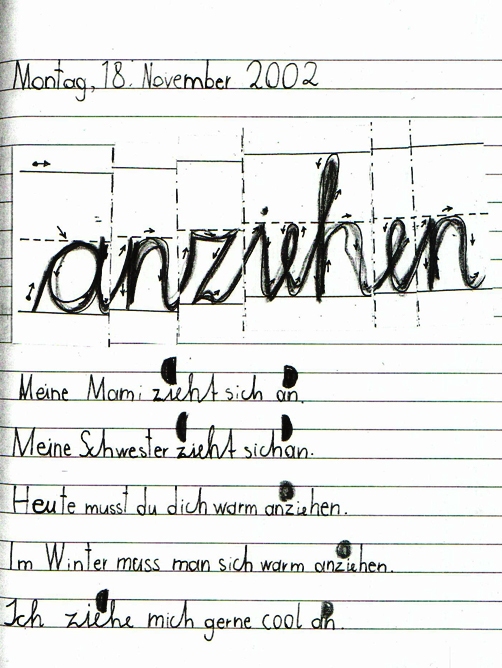 Montag, 18. November 2002
anziehen
Meine Mami zieht sich an.
Meine Schwester zieht sich an.
Heute musst du dich warm anziehen.
Im Winter muss man sich warm anziehen.
Ich ziehe mich gerne cool an.